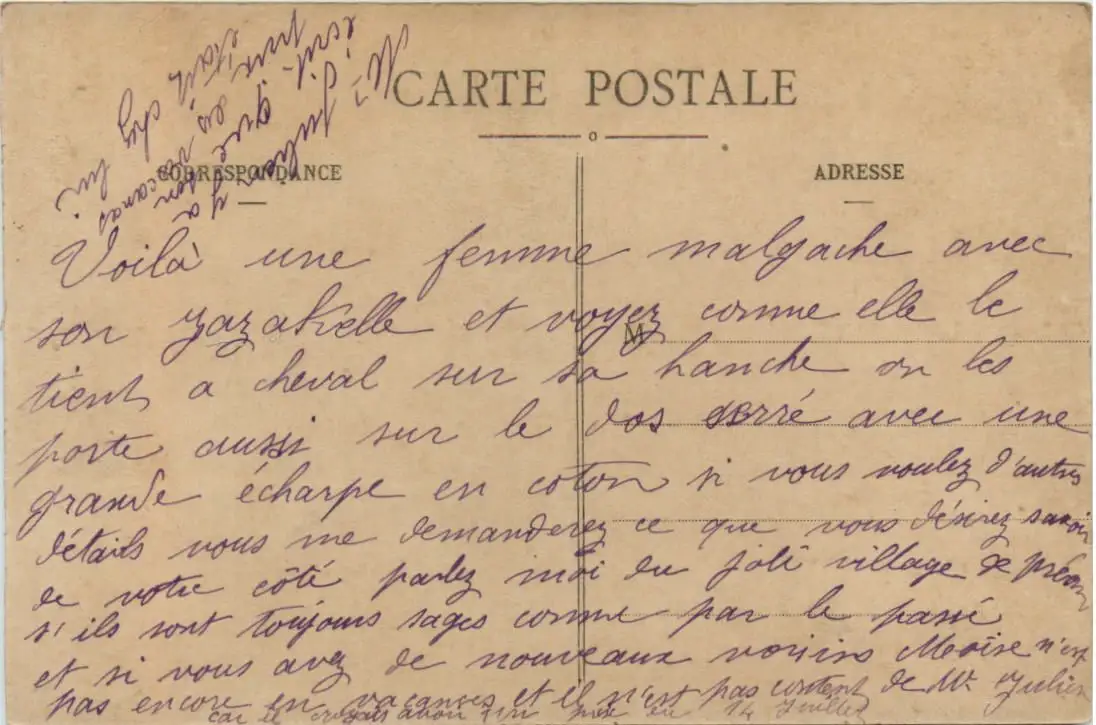 CARTE POSTALE
CORRESPONDANCE
ADRESSE
M
Voilà une femme malgache avec
son zazakelle et voyez comme elle le
tient a cheval sur sa hanche on les
porte aussi sur le dos serré avec une
grande écharpe en coton si vous voulez d'autres
détails vous me demanderez ce que vous désirez savoir
de votre côté parlez moi du joli village de
s'ils sont toujours sages comme par le passé
et si vous avez de nouveaux voisins Moïse n'est
pas encore en vacances et il n'est pas content de Mr Julien
car il avoir un en 14 Juillet
Mr
Julien y a
écrit que
pour son
dis vacances
était chez lui